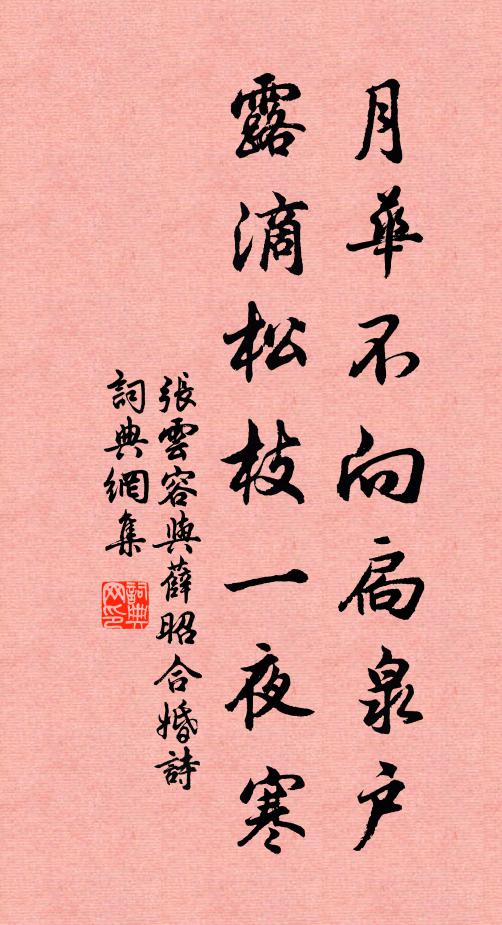 月華不向扃泉户
露滴松枝一夜寒
張雲容與薛昭合婚詩
詞典網集
詞典
网印